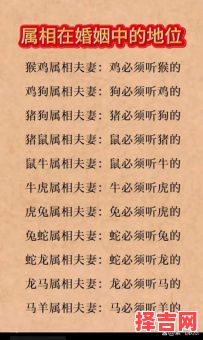 属相在婚姻中的地位
猴鸡属相夫妻：鸡必须听猴的
鸡狗属相夫妻：狗必须听鸡的
猪狗属相夫妻：猪必须听狗的
猪鼠属相夫妻：鼠必须听猪的
鼠牛属相夫妻：鼠必须听牛的
牛虎属相夫妻：牛必须听虎的
虎兔属相夫妻：虎必须听兔的
兔蛇属相夫妻：兔必须听蛇的
蛇龙属相夫妻：蛇必须听龙的
龙马属相夫妻：龙必须听马的
马羊属相夫妻：马必须听羊的
择吉网